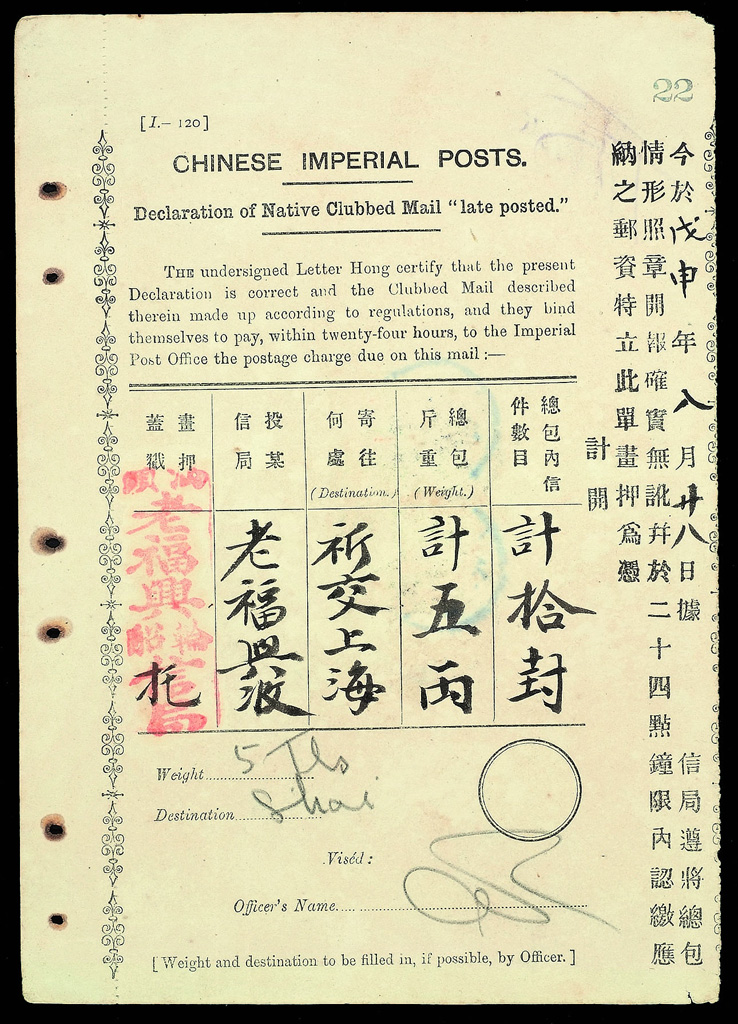 22
[I.— 120]
CHINESE IMPERIAL POSTS.
Declaration of Native Clubbed Mail "late posted."
THE undersigned Letter Hong certify that the present
Declaration is correct and the Clubbed Mail described
therein made up according to regulations, and they bind
themselves to pay, within twenty-four hours, to the Imperial
Post Office the postage charge due on this mail :—
今於戊申年八月廿八日據 信局遵將總包
情形照章開報確實無訛幷於二十四點鐘限內認繳應
納之郵資特立此單畫押爲憑
計開
總包內信
件數目
計拾封
總包
斤重
(Weight.)
計五兩
寄往
何處
(Destination.)
祈交上海
投某
信局
老福興波
畫押
蓋戳
老福興
信局
托
Weight 5 Tls
Destination S'hai
Viséd :
Officer's Name
[ Weight and destination to be filled in, if possible, by Officer. ]